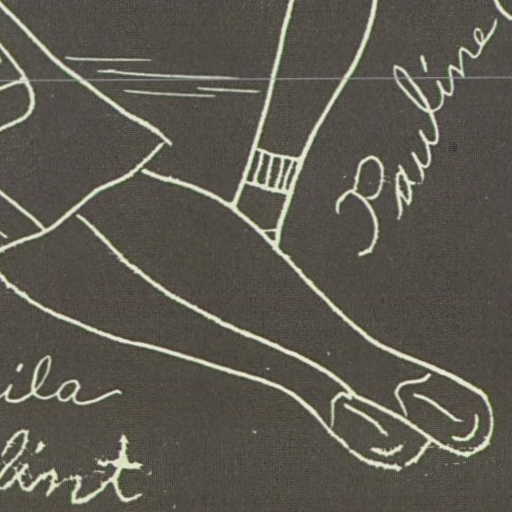 Pauline
ila
lint